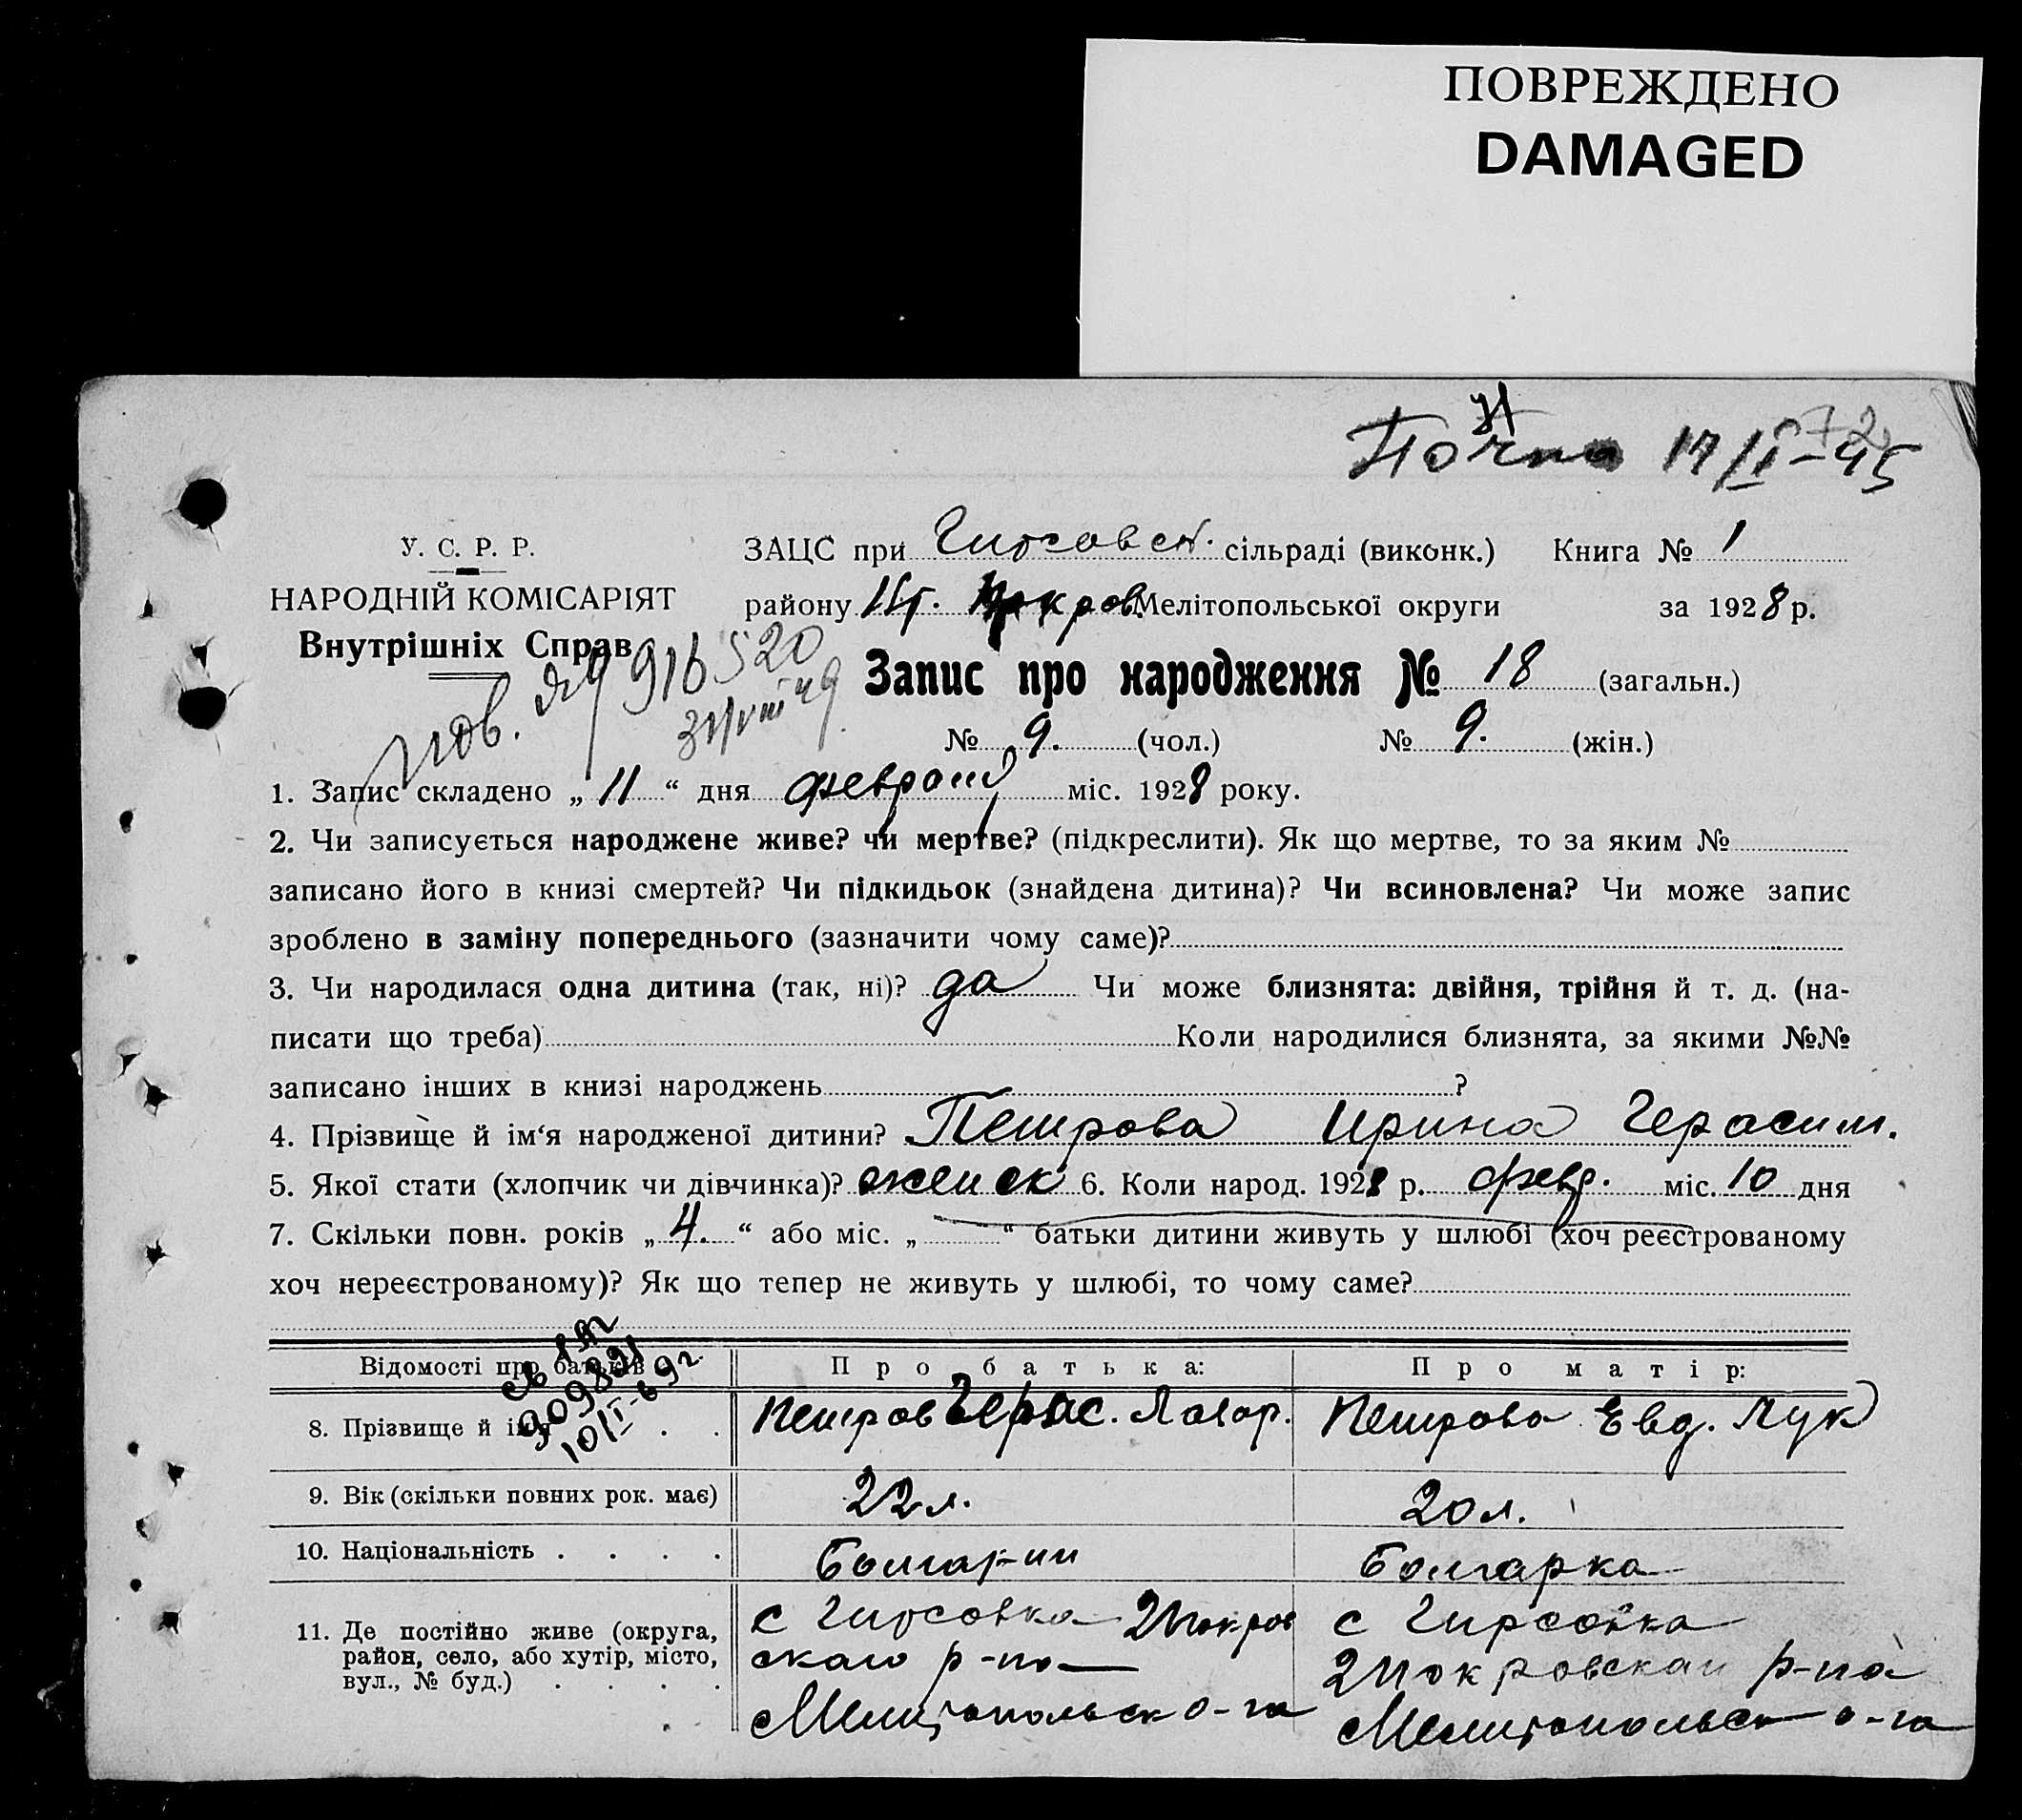 ПОВРЕЖДЕНО
DAMAGED
17/I-45
У. С. Р. Р.
НАРОДНІЙ КОМІСАРІЯТ
Внутрішніх Справ
ЗАЦС при Гирсовск. сільраді (виконк.) Книга № 1
району Мелітопольської округи за 1928 р.
пов. 916520
31/VIII 49
Запис про народження № 18 (загальн.)
№ 9. (чол.) № 9. (жін.)
1. Запис складено „ 11 “ дня февраля міс. 1928 року.
2. Чи записується народжене живе? чи мертве? (підкреслити). Як що мертве, то за яким №
записано його в книзі смертей? Чи підкидьок (знайдена дитина)? Чи всиновлена? Чи може запис
зроблено в заміну попереднього (зазначити чому саме)?
3. Чи народилася одна дитина (так, ні)? да Чи може близнята: двійня, трійня й т. д. (на-
писати що треба) Коли народилися близнята, за якими №№
записано інших в книзі народжень ?
4. Прізвище й ім‘я народженої дитини? Петрова Ирина Герасим.
5. Якої стати (хлопчик чи дівчинка)? женск 6. Коли народ. 1928 р. февр. міс. 10 дня
7. Скільки повн. років „ 4. “ або міс. „ “ батьки дитини живуть у шлюбі (хоч реєстрованому
хоч нереєстрованому)? Як що тепер не живуть у шлюбі, то чому саме?
909821
10/I-69г
Відомості про батьків Про батька: Про матір:
8. Прізвище й ім'я Петров Герас. Лазар. Петрова Евд. Лук
9. Вік (скільки повних рок. має) 22 л. 20 л.
10. Національність Болгарин Болгарка
11. Де постійно живе (округа, район, село, або хутір, місто, вул., № буд.)
с Гирсовка 2 Покров
скаго р-на
Мелитопольск о-га
с Гирсовка
2 Покровскаи р-на
Мелитопольск о-га